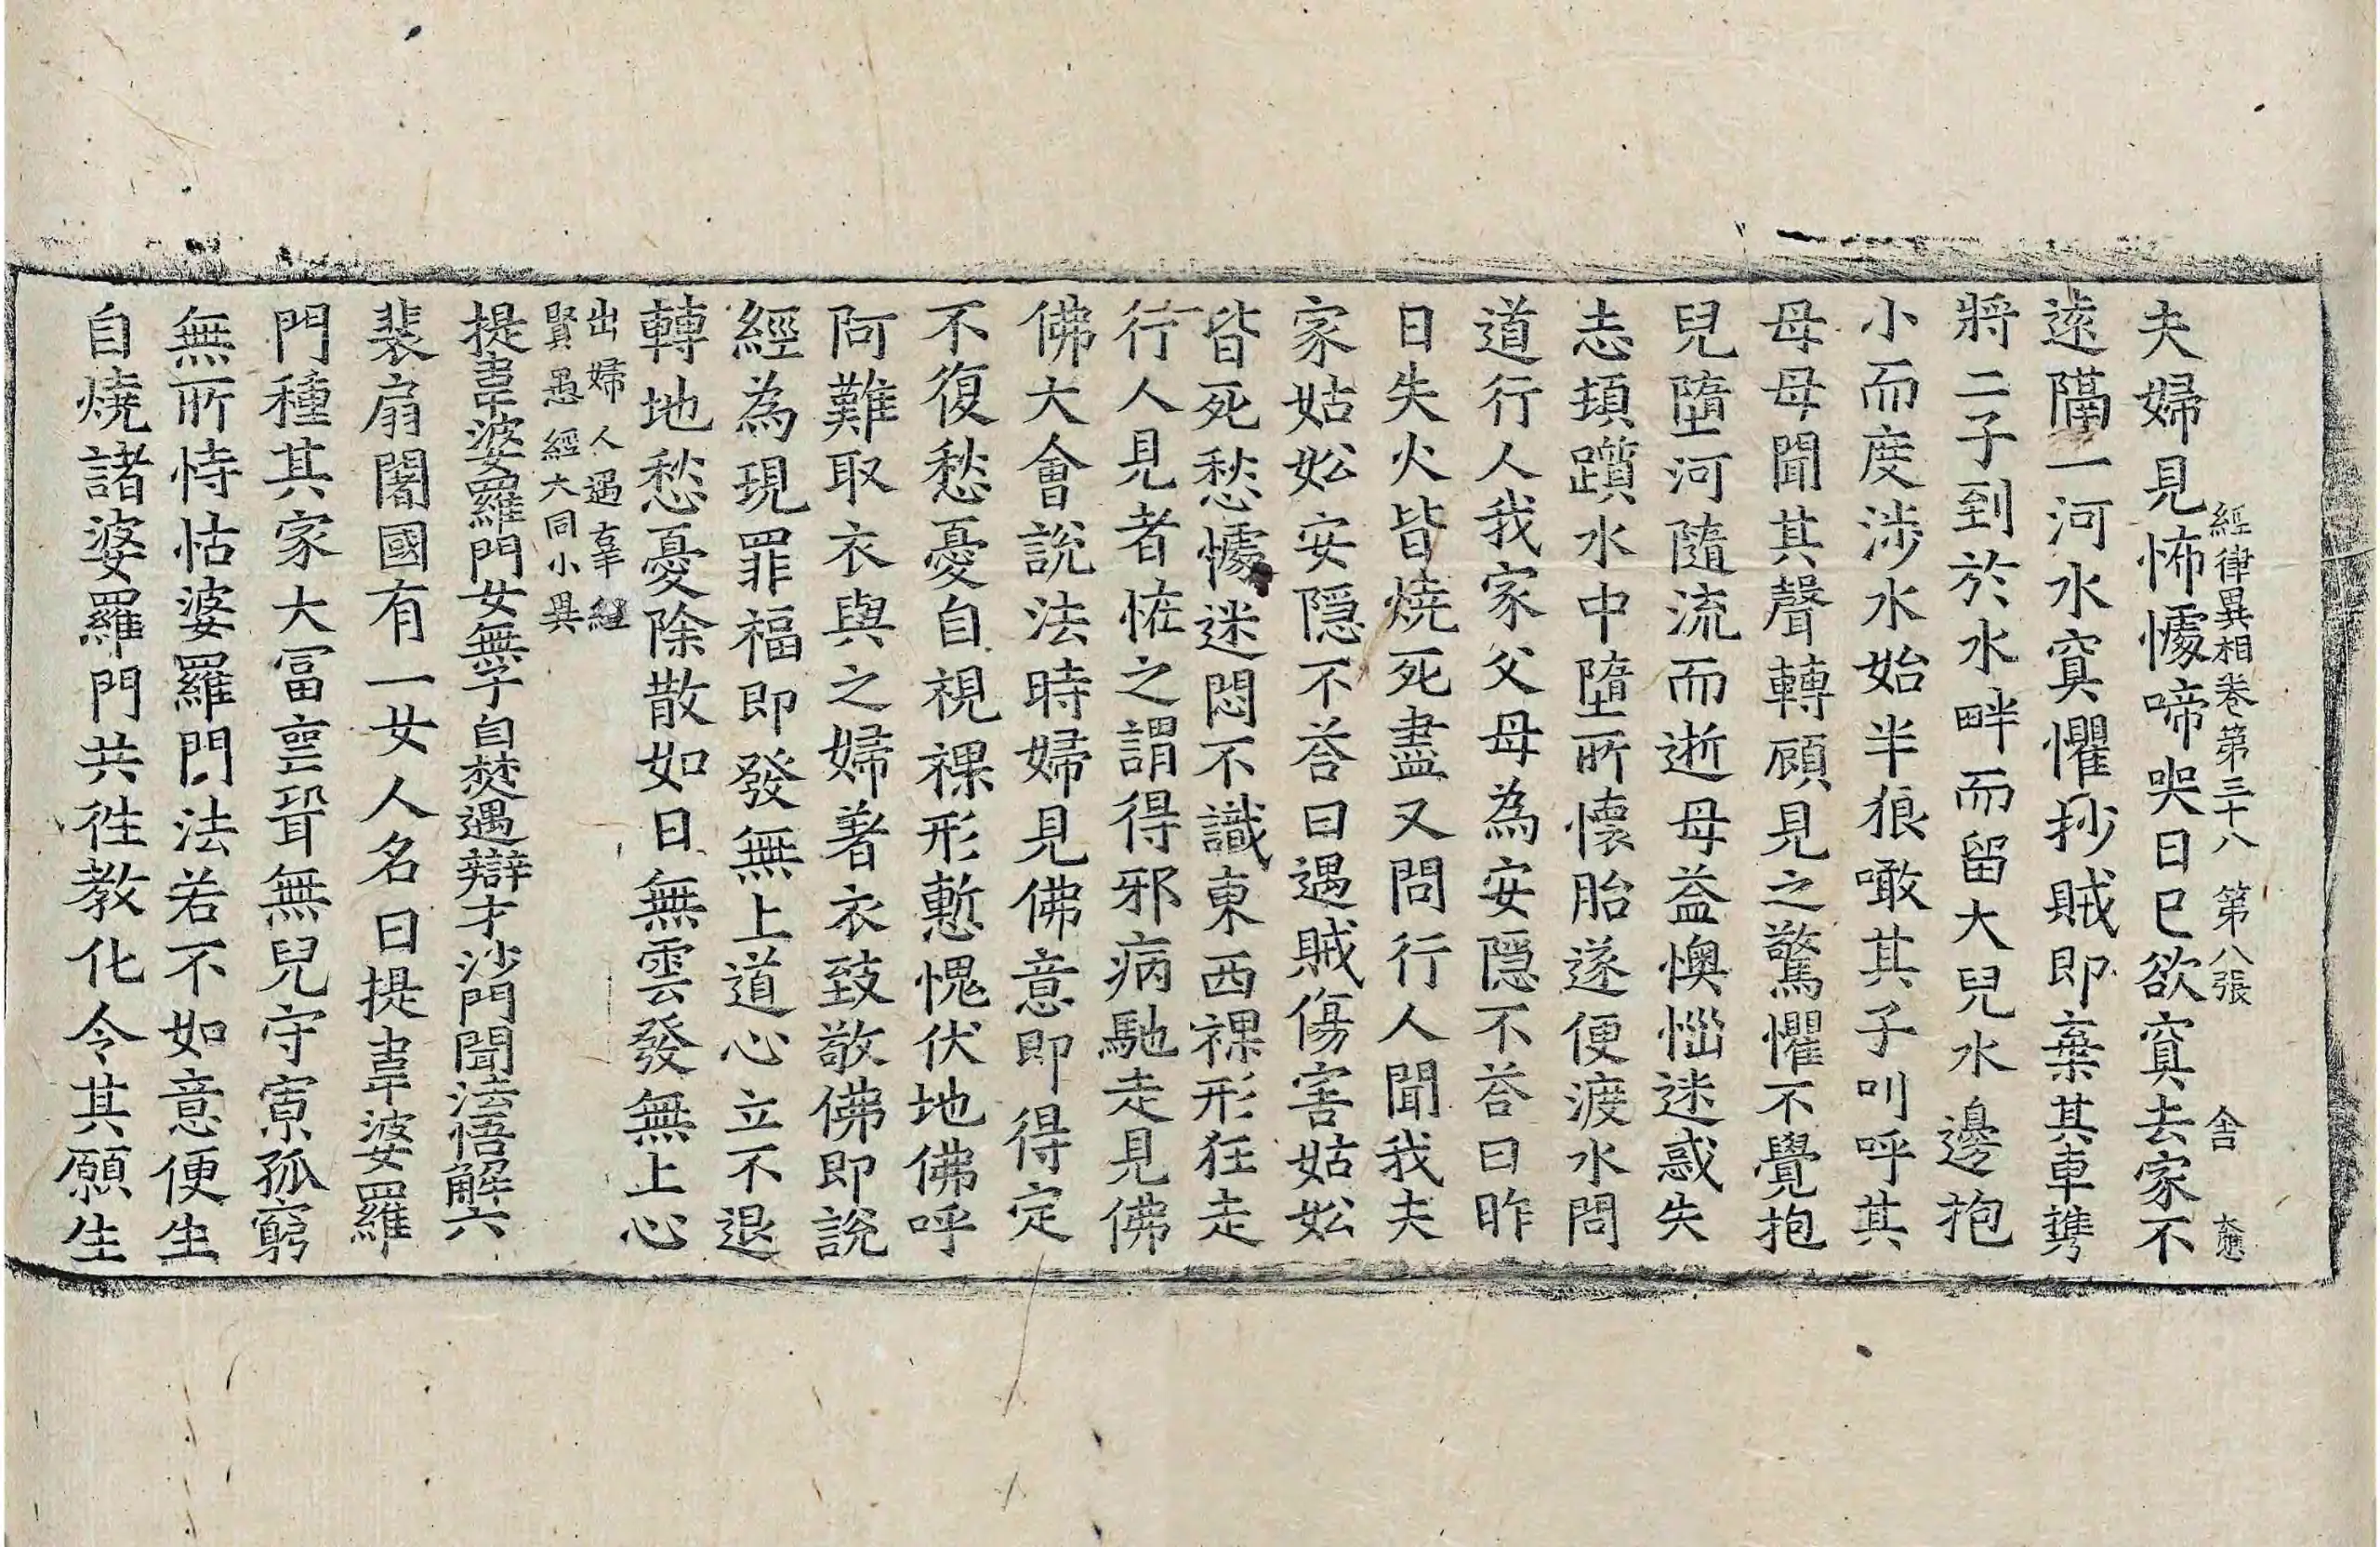 經律異相卷第三十八 第八張 舎
夫婦見怖懅啼哭日已欲冥去家不
遠隔一河水冥懼抄賊即棄其車㩗
將二子到於水畔而留大兒水邊抱
小而度涉水始半狼噉其子叫呼其
母母聞其聲轉顧見之驚懼不覺抱
兒墮河隨流而逝母益懊惱迷惑失
志頓躓水中墮所懷胎遂便渡水問
道行人我家父母為安隱不荅曰昨
日失火皆燒死盡又問行人聞我夫
家姑妐安隱不荅曰遇賊傷害姑妐
皆死愁懅迷悶不識東西裸形狂走
行人見者恠之謂得邪病馳走見佛
佛大會說法時婦見佛意即得定
不復愁憂自視裸形慙愧伏地佛呼
阿難取衣與之婦著衣致敬佛即說
經為現罪福即發無上道心立不退
轉地愁憂除散如日無雲發無上心
出婦人遇辜經
賢愚經大同小異
提韋婆羅門女無子自焚遇辯才沙門聞法悟解六
裴扇闍國有一女人名曰提韋婆羅
門種其家大冨壹聟無兒守寡孤窮
無所恃怙婆羅門法若不如意便生
自燒諸婆羅門共徃教化令其願生